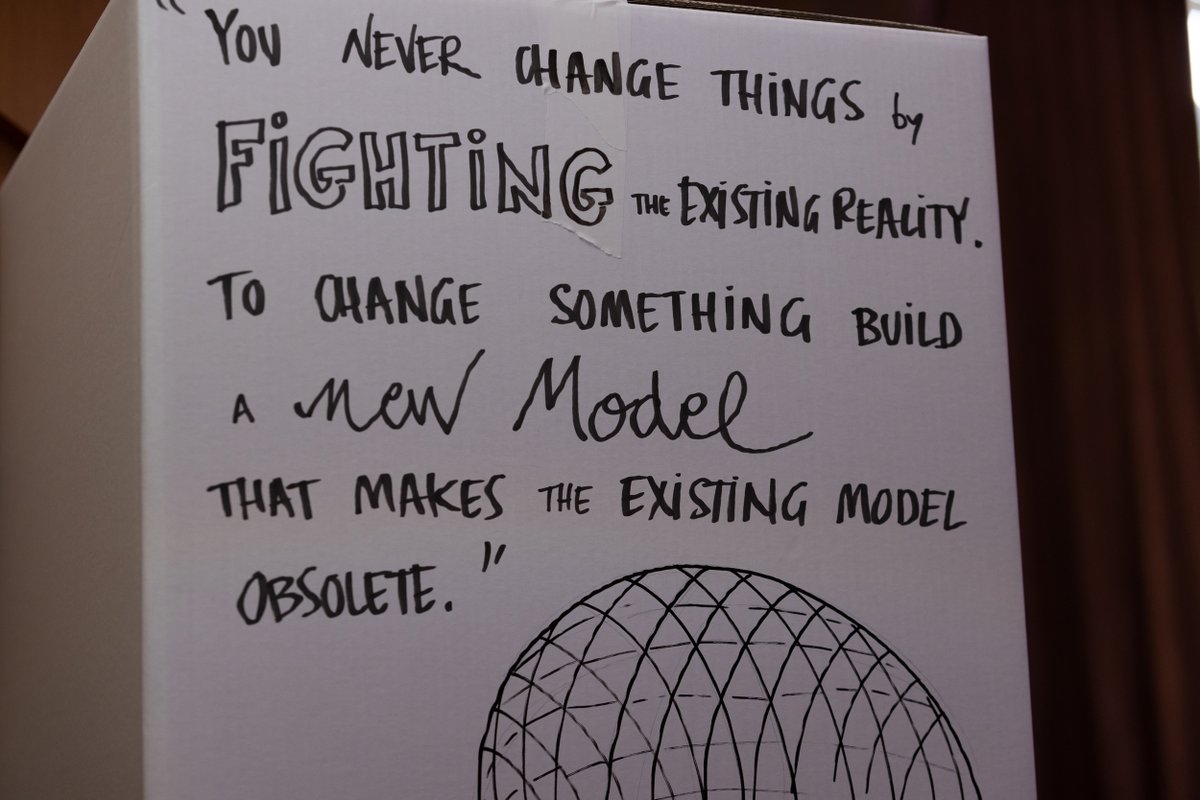 "YOU NEVER CHANGE THiNGS by
FiGHTiNG THE EXiSTiNG REALiTY.
TO CHANGE SOMETHiNG BUiLD
A New Model
THAT MAKES THE EXiSTiNG MODEL
OBSOLETE."